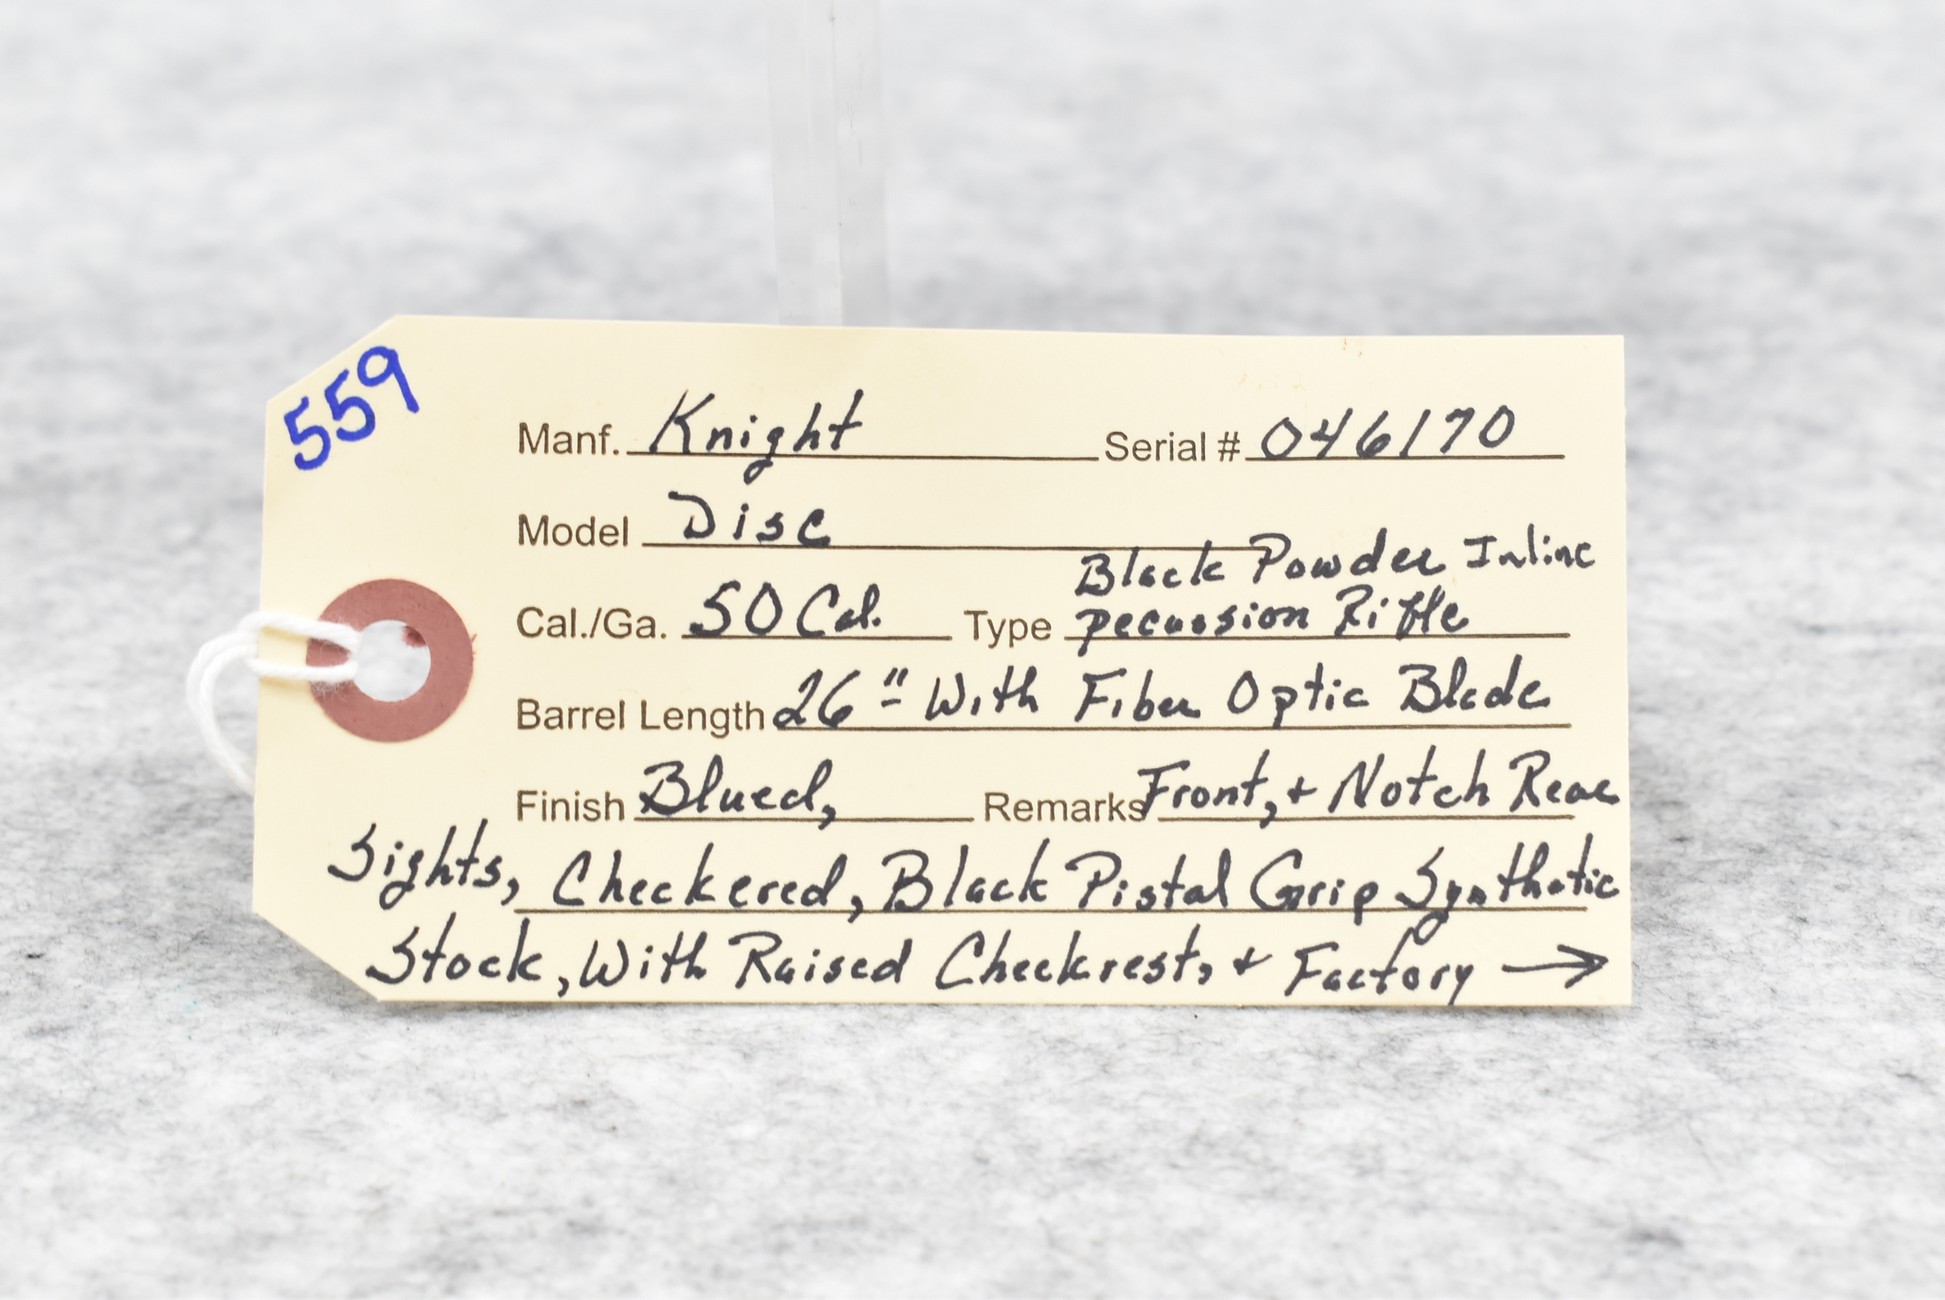 559
Manf. Knight Serial # 046170
Model Disc
Black Powder Inline
Cal./Ga. 50 Cal. Type pecussion Rifle
Barrel Length 26" With Fiber Optic Blade
Finish Blued, Remarks Front, + Notch Rear
Sights, Checkered, Black Pistal Grip Synthetic
Stock, With Raised Checkrest, + Factory →